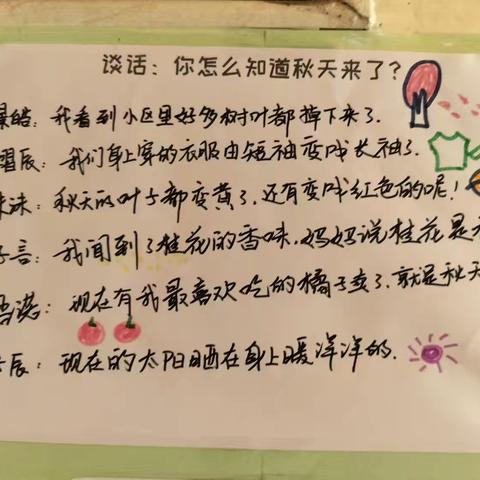 谈话：你怎么知道秋天来了？
皓：我看到小区里好多树叶都掉下来了.
辰：我们身上穿的衣服由短袖变成长袖了.
沫：秋天的叶子都变黄了.还有变成红色的呢！
言：我闻到了桂花的香味,妈妈说桂花是
诺：现在有我最喜欢吃的橘子卖了.就是秋天
辰：现在的太阳晒在身上暖洋洋的.